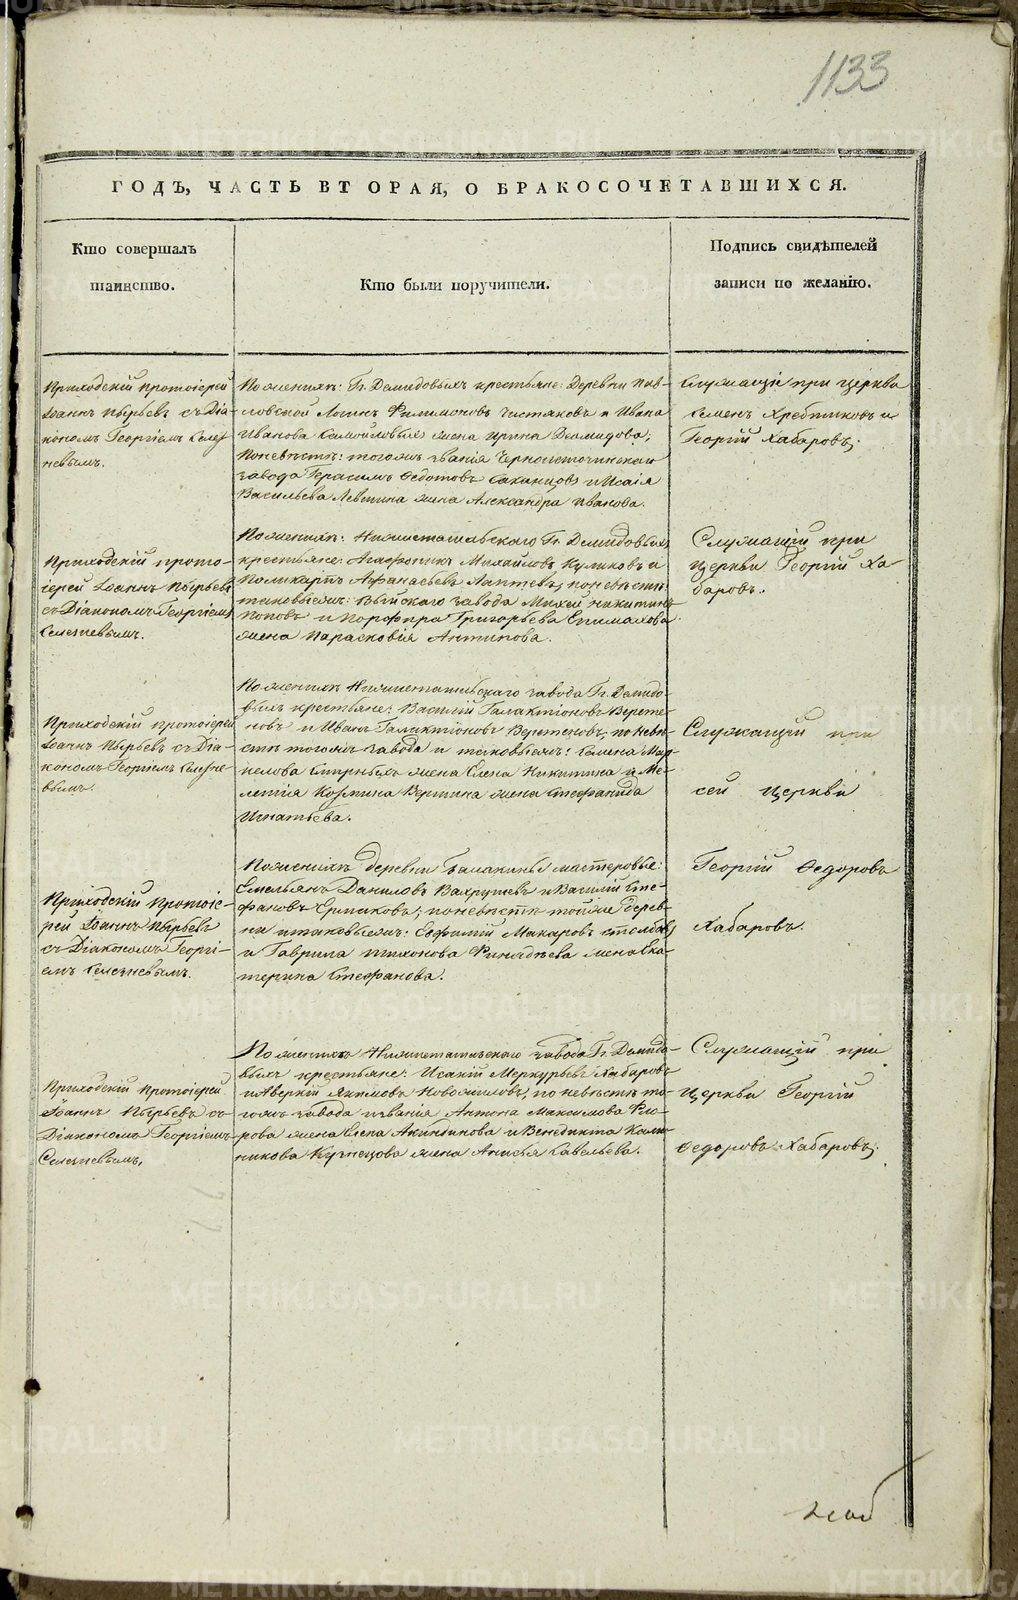 1133
ГОДЪ, ЧАСТЬ ВТОРАЯ, О БРАКОСОЧЕТАВШИХСЯ.
Кто совершалъ
таинство.
Кто были поручители.
Подпись свидѣтелей
записи по желанію.
Приходскій протоіерей
Іоаннъ Пырьевъ съ Діа-
кономъ Георгіемъ Селез-
невымъ.
По женихѣ: Гг. Демидовыхъ крестьяне: Деревни Пав-
ловской Логинъ Филимоновъ Чистяковъ и Ивана
Иванова жена Ирина Демидова,
По невѣстѣ: тогожъ званія Черноисточинскаго
завода Герасимъ Ѳедотовъ и Исаія
Васильева Левтина жена Александра Иванова.
Служащіе при церкви
Семенъ Хребтиковъ и
Георгій Хабаровъ.
Приходскій прото-
іерей Іоаннъ Пырьевъ
съ Діакономъ Георгіемъ
Селезневымъ.
По женихѣ: Нижнетагильскаго Гг. Демидовыхъ
крестьяне: Агафоникъ Михайловъ Куликовъ и
Поликарпъ Афанасьевъ Лаптевъ, по невѣстѣ
таковыежъ: Выйскаго завода Михей Никитинъ
Поповъ и Порфира Григорьева
жена Парасковія Антипова.
Служащій при
церкви Георгій Ха-
баровъ.
Приходскій протоіерей
Іоаннъ Пырьевъ съ Діа-
кономъ Георгіемъ Селезне-
вымъ.
По женихѣ Нижнетагильскаго завода Гг. Демидо-
выхъ крестьяне: Василій Галактіоновъ Верете-
новъ и Иванъ Галактіоновъ Веретеновъ, по невѣ-
стѣ тогожъ завода и таковыежъ: Семена
жена Елена Никитина и Ме-
летія Козмина жена Стефанида
Игнатьева.
Служащій при
сей церкви
Приходскій протоіе-
рей Іоаннъ Пырьевъ
съ Діакономъ Георгі-
емъ Селезневымъ.
По женихѣ деревни Балакиной мастеровые:
Емельянъ Даниловъ Вахрушевъ и Василій Сте-
фановъ Ермаковъ; по невѣстѣ тойже дерев-
ни и таковыежъ: Евфимій Макаровъ
и Гаврила Тихонова жена Ека-
терина Стефанова.
Георгій Ѳедоровъ
Хабаровъ.
Приходскій Протоіерей
Іоаннъ Пырьевъ съ
Діакономъ Георгіемъ
Селезневымъ,
По женихѣ Нижнетагильскаго завода Гг. Демидо-
выхъ крестьяне: Исакій Меркурьевъ Хабаровъ
и Аверкій Якимовъ Новожиловъ, по невѣстѣ то-
гожъ завода и званія Антона Максимова
жена Елена Акиндинова и Венедикта
Кузнецова жена Анисья Савельева.
Служащій при
церкви Георгій
Ѳедоровъ Хабаровъ.